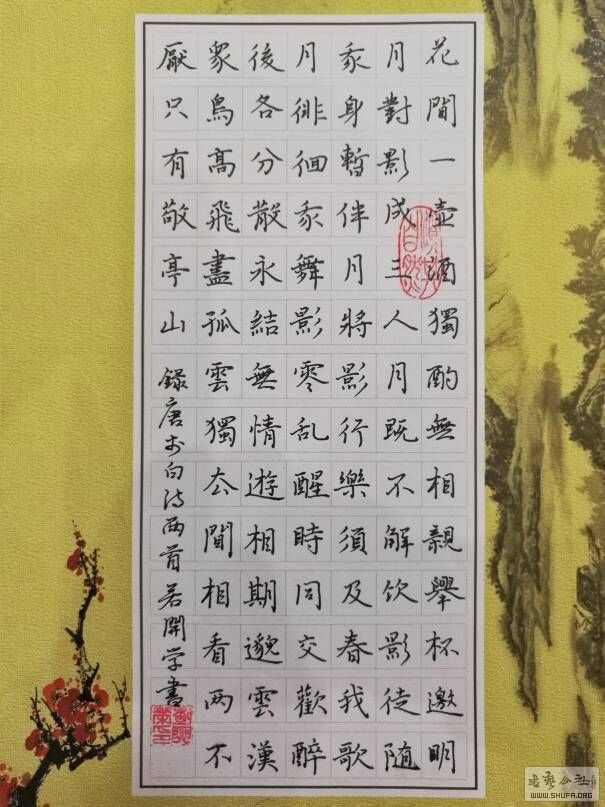 花間一壺酒獨酌無相親舉杯邀明
月對影成三人月既不解饮影徒隨
我身暫伴月將影行樂須及春我歌
月徘徊我舞影零乱醒時同交歡醉
後各分散永結無情遊相期邈雲漢
衆鳥高飛盡孤雲獨去閒相看两不
厭只有敬亭山
録唐李白诗两首若開学書
书艺公社
WWW.SHUFA.ORG